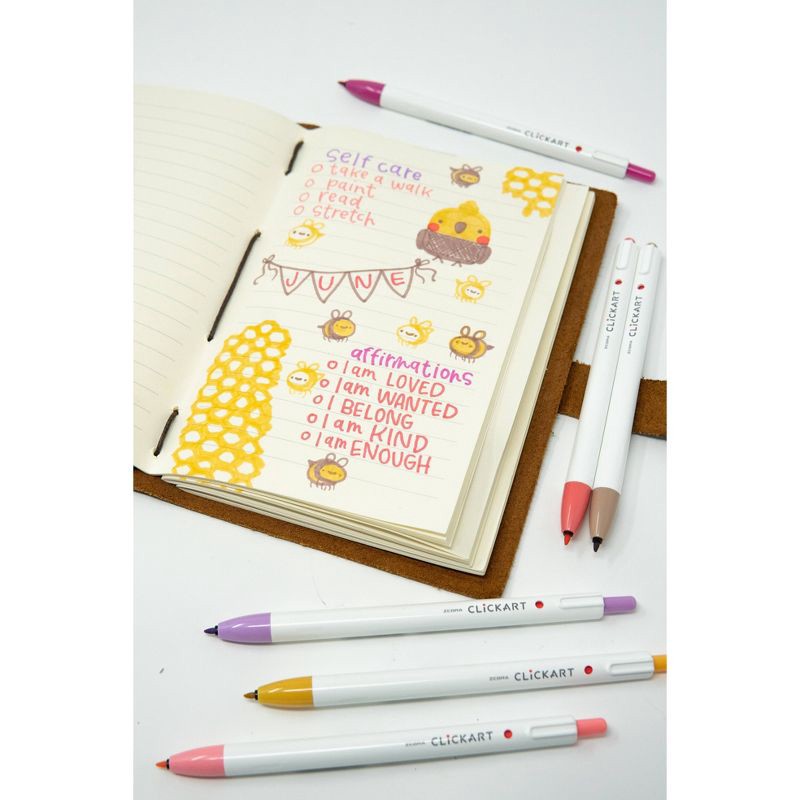 ZEBRA CLiCKART
self care
o take a walk
o paint
o read
o stretch
JUNE
affirmations
o I am LOVED
o I am WANTED
o I BELONG
o I am KIND
o I am ENOUGH
ZEBRA CLiCKART
ZEBRA CLiCKART
ZEBRA CLiCKART
ZEBRA CLiCKART
ZEBRA CLiCKART